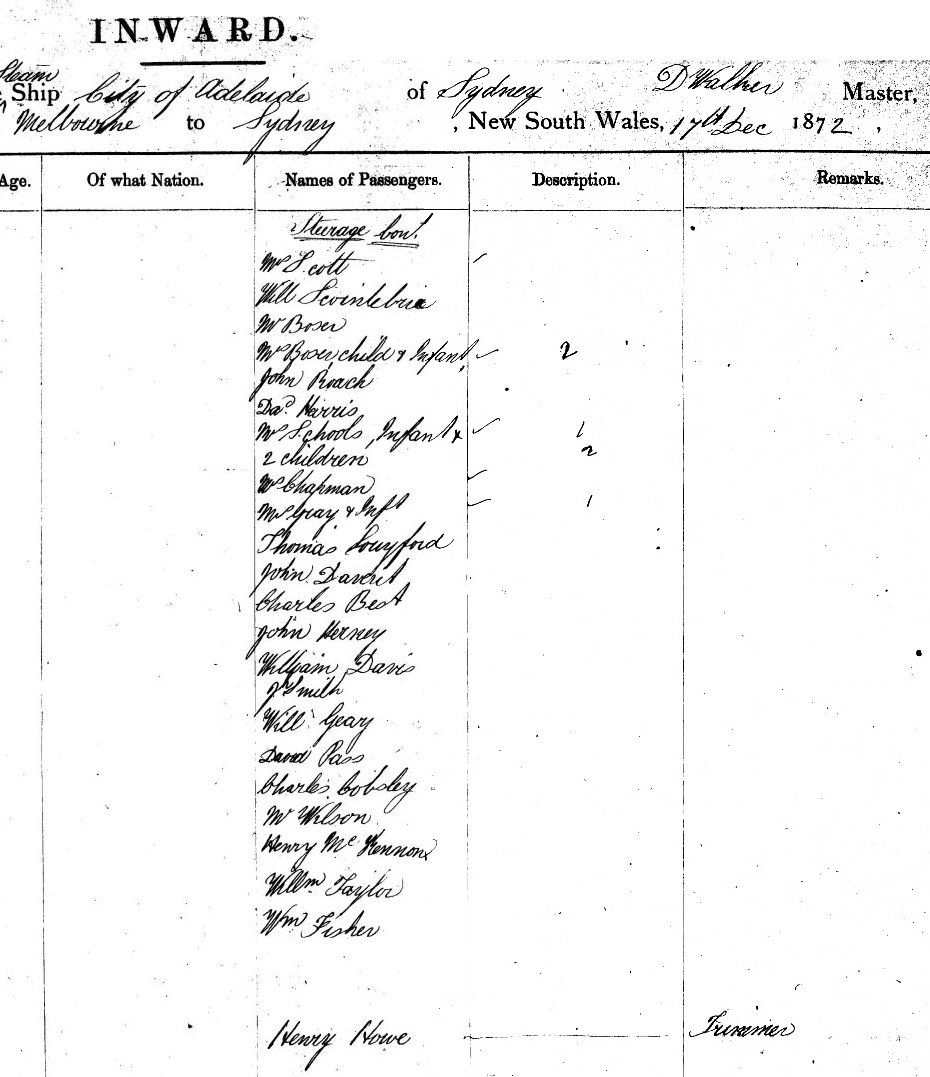 INWARD.
Steam
Ship City of Adelaide of Sydney D Walker Master,
Melbourne to Sydney, New South Wales, 17th Dec 1872.
Age. Of what Nation. Names of Passengers. Description. Remarks.
Steerage con!
Mrs Scott
Will
Mr Boser
Mrs Boser, child & Infant, 2
John Roach
Dad. Harris
Mrs Schools, Infant & 1
2 children 2
Mrs Chapman
Mrs Gray & Inft 1
Thomas
John Davent
Charles Best
John Herney
William Davis
J Smith
Will Geary
David Pass
Charles Cobsley
Mr Wilson
Henry Mc Kennon
Willm Taylor
Wm Fisher
Henry Howe Trimmer